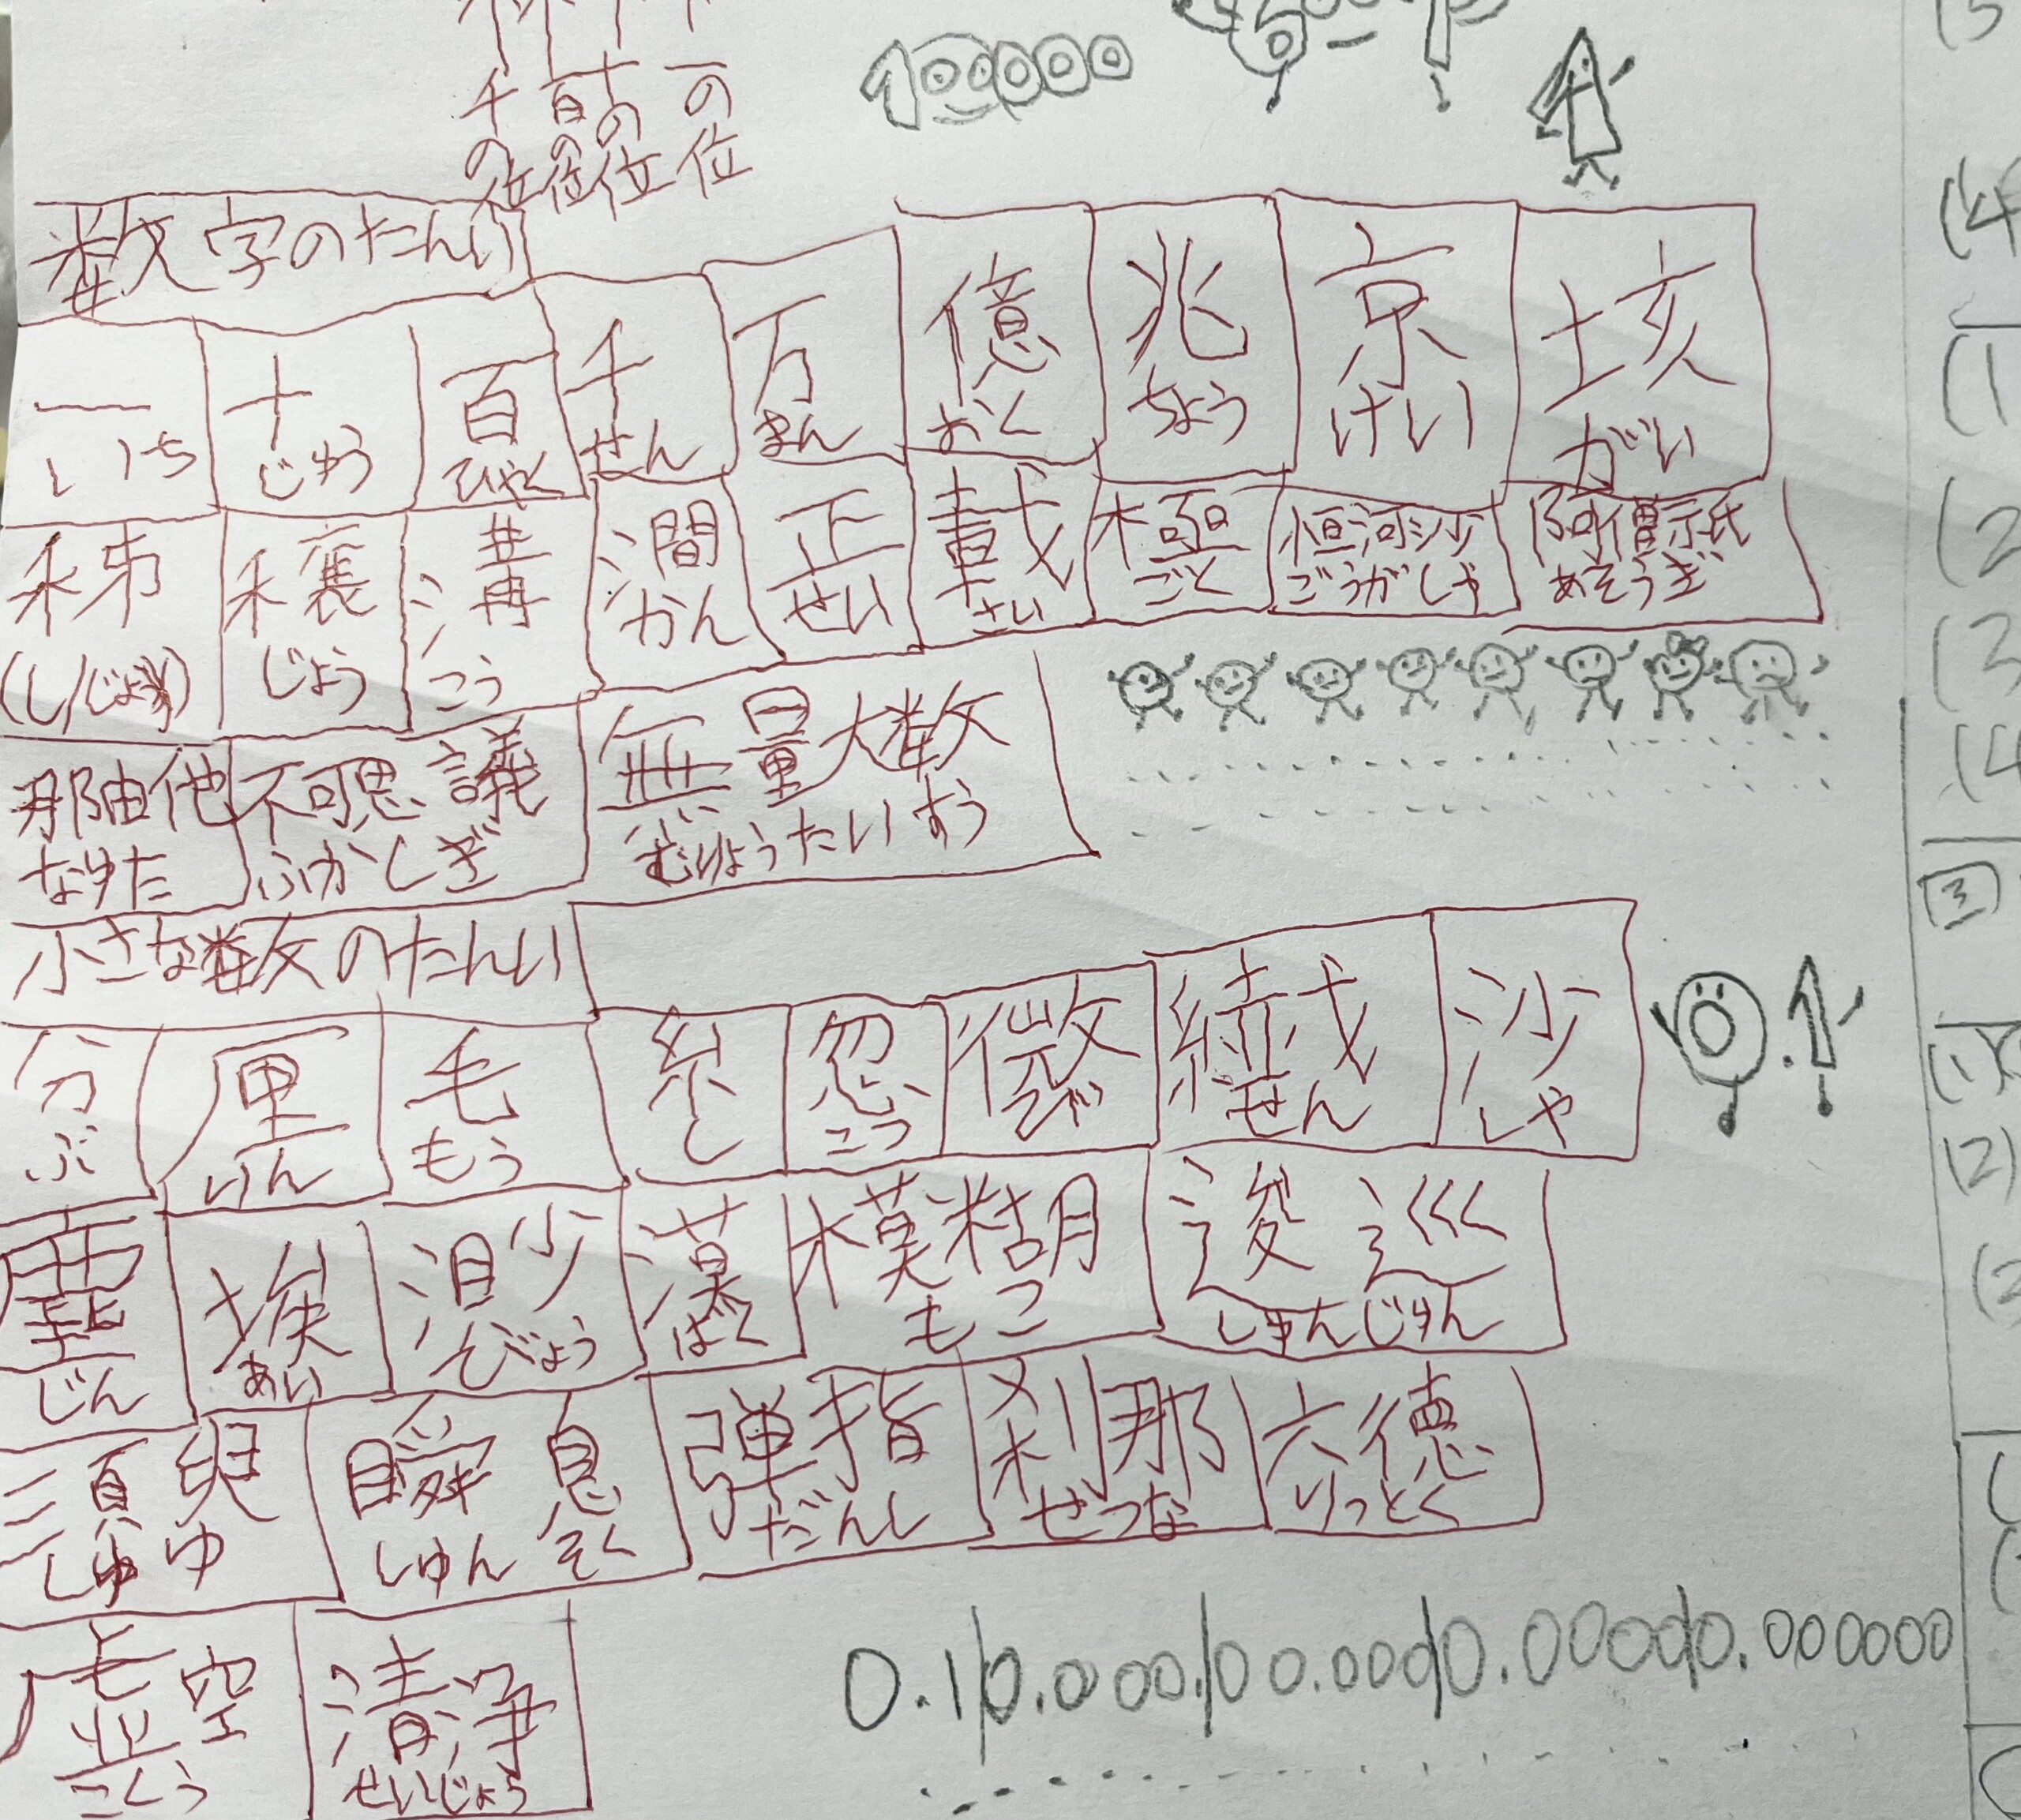 千の位 百の位 十の位 一の位
10000
数字のたんい
一 十 百 千 万 億 兆 京 垓
いち じゅう ひゃく せん まん おく ちょう けい がい
秭 穣 溝 澗 正 載 極 恒河沙 阿僧祇
(し/じょ) じょう こう かん せい さい ごく ごうがしゃ あそうぎ
那由他 不可思議 無量大数
なゆた ふかしぎ むりょうたいすう
小さな数のたんい
分 厘 毛 糸 忽 微 繊 沙
ぶ りん もう し こつ び せん しゃ
0.1
塵 埃 渺 漠 模糊 逡巡
じん あい びょう ばく もこ しゅんじゅん
須臾 瞬息 弾指 刹那 六徳
しゅゆ しゅんそく だんし せつな りっとく
虚空 清浄
こくう せいじょう
(4
(1
(2
(3
(4
3
(1)
(2)
(2